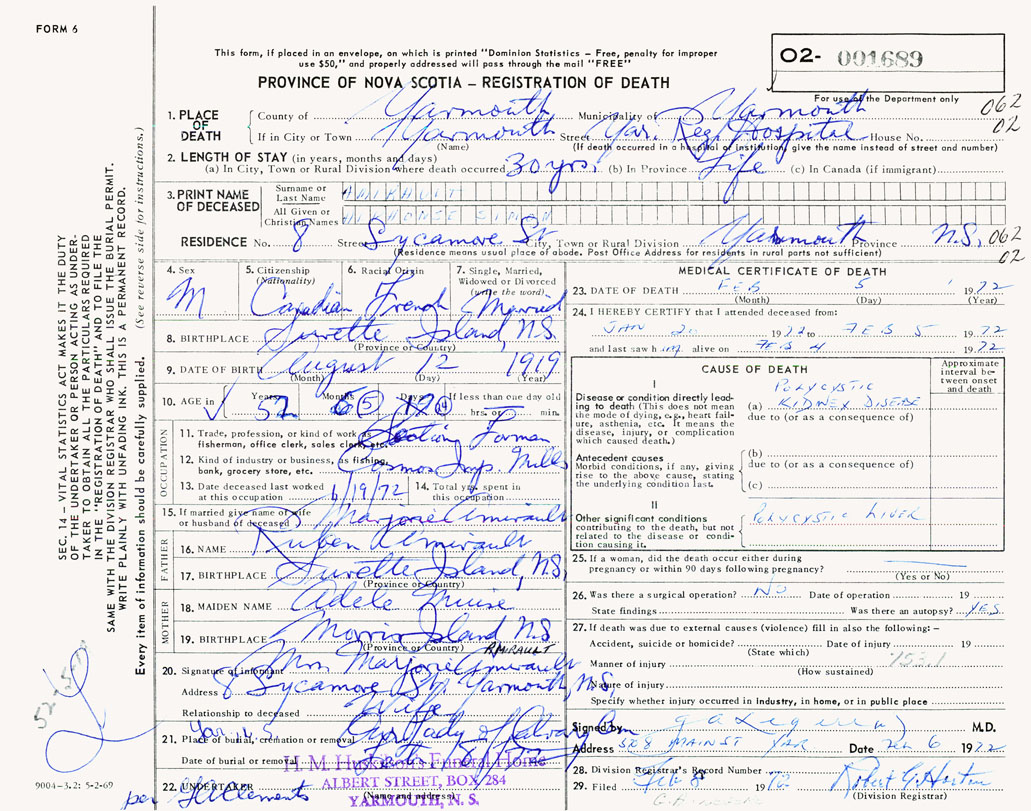 FORM 6
This form, if placed in an envelope, on which is printed "Dominion Statistics – Free, penalty for improper
use $50," and properly addressed will pass through the mail "FREE"
PROVINCE OF NOVA SCOTIA – REGISTRATION OF DEATH
02- 001689
For use of the Department only
062
02
1. PLACE OF DEATH
County of Yarmouth Municipality of Yarmouth
If in City or Town Yarmouth Street Yar. Reg. Hospital House No.
(Name) (If death occurred in a hospital or institution, give the name instead of street and number)
2. LENGTH OF STAY (in years, months and days)
(a) In City, Town or Rural Division where death occurred 30 yrs. (b) In Province Life (c) In Canada (if immigrant)
3. PRINT NAME OF DECEASED
Surname or Last Name
All Given or Christian Names SIMON
RESIDENCE No. 8 Street Sycamore St City, Town or Rural Division Yarmouth Province N.S. 062
02
(Residence means usual place of abode. Post Office Address for residents in rural parts not sufficient)
4. Sex
M
5. Citizenship
(Nationality)
Canadian
6. Racial Origin
French
7. Single, Married,
Widowed or Divorced
(write the word)
Married
8. BIRTHPLACE Surette Island, N.S.
(Province or Country)
9. DATE OF BIRTH August 12 1919
(Month) (Day) (Year)
10. AGE in Years Months Days If less than one day old
52 5 hrs. or min.
OCCUPATION
11. Trade, profession, or kind of work as
fisherman, office clerk, sales clerk, etc. Forman
12. Kind of industry or business, as fishing,
bank, grocery store, etc. Cosmos Imp. Mills
13. Date deceased last worked
at this occupation 1/19/72
14. Total yrs. spent in
this occupation
15. If married give name of wife
or husband of deceased Marjorie Amirault
FATHER
16. NAME Ruben Amirault
17. BIRTHPLACE Surette Island, N.S.
(Province or Country)
MOTHER
18. MAIDEN NAME Adele Muise
19. BIRTHPLACE Morris Island N.S.
(Province or Country)
20. Signature of informant Mrs. Marjorie Amirault
Address 8 Sycamore St. Yarmouth, N.S.
Relationship to deceased Wife
21. Place of burial, cremation or removal Our Lady of Calvary
Date of burial or removal
22. UNDERTAKER
(Name and address)
H. M. Huskilson's Funeral Home
ALBERT STREET, BOX 284
YARMOUTH, N. S.
MEDICAL CERTIFICATE OF DEATH
23. DATE OF DEATH FEB 5 1972
(Month) (Day) (Year)
24. I HEREBY CERTIFY that I attended deceased from:
JAN 20 1972 to FEB 5 1972
and last saw him alive on FEB 4 1972
CAUSE OF DEATH
Approximate interval between onset and death
I
Disease or condition directly leading to death (This does not
mean the mode of dying, e.g., heart failure, asthenia, etc. It means the
disease, injury, or complication
which caused death.)
(a) POLYCYSTIC
KIDNEY DISEASE
due to (or as a consequence of)
Antecedent causes
Morbid conditions, if any, giving
rise to the above cause, stating
the underlying condition last.
(b)
due to (or as a consequence of)
(c)
II
Other significant conditions
contributing to the death, but not
related to the disease or condition causing it.
POLYCYSTIC LIVER
25. If a woman, did the death occur either during
pregnancy or within 90 days following pregnancy?
(Yes or No)
26. Was there a surgical operation? NO Date of operation 19
State findings Was there an autopsy? YES
27. If death was due to external causes (violence) fill in also the following: –
Accident, suicide or homicide? Date of injury 19
(State which)
Manner of injury 153.1
(How sustained)
Nature of injury
Specify whether injury occurred in industry, in home, or in public place
Signed by M.D.
Address 528 MAIN ST YAR Date Feb 6 1972
28. Division Registrar's Record Number
29. Filed Feb 8 1972 Robert G. Horton
(Division Registrar)
SEC. 14 – VITAL STATISTICS ACT MAKES IT THE DUTY
OF THE UNDERTAKER OR PERSON ACTING AS UNDERTAKER TO OBTAIN ALL THE PARTICULARS REQUIRED
IN THE "REGISTRATION OF DEATH" AND TO FILE THE
SAME WITH THE DIVISION REGISTRAR WHO SHALL ISSUE THE BURIAL PERMIT.
WRITE PLAINLY WITH UNFADING INK. THIS IS A PERMANENT RECORD.
Every item of information should be carefully supplied. (See reverse side for instructions.)
9004–3.2: 5-2-69